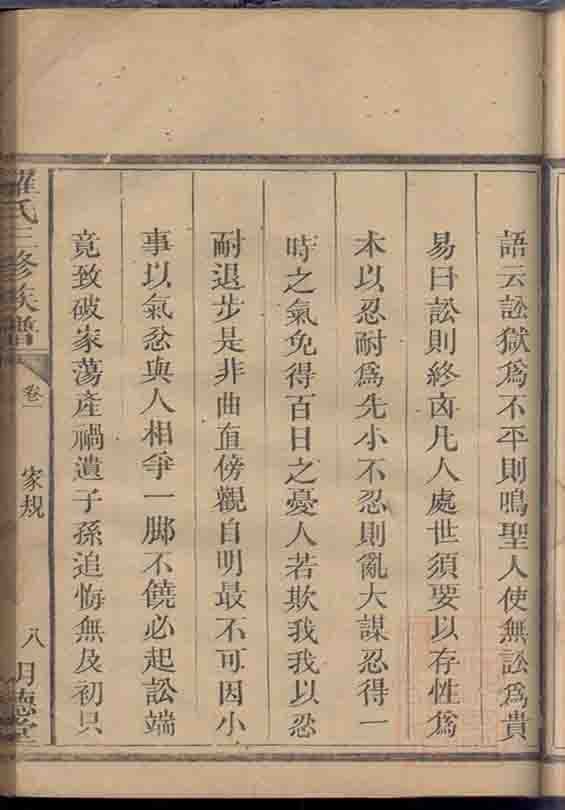 語云訟獄爲不平則鳴聖人使無訟爲貴
易曰訟則終凶凡人處世須要以存性爲
本以忍耐爲先小不忍則亂大謀忍得一
時之氣免得百日之憂人若欺我我以忍
耐退步是非曲直傍觀自明最不可因小
事以氣忿與人相爭一脚不饒必起訟端
竟致破家蕩產禍遺子孫追悔無及初只
羅氏三修族譜
卷一
家規
八
德堂